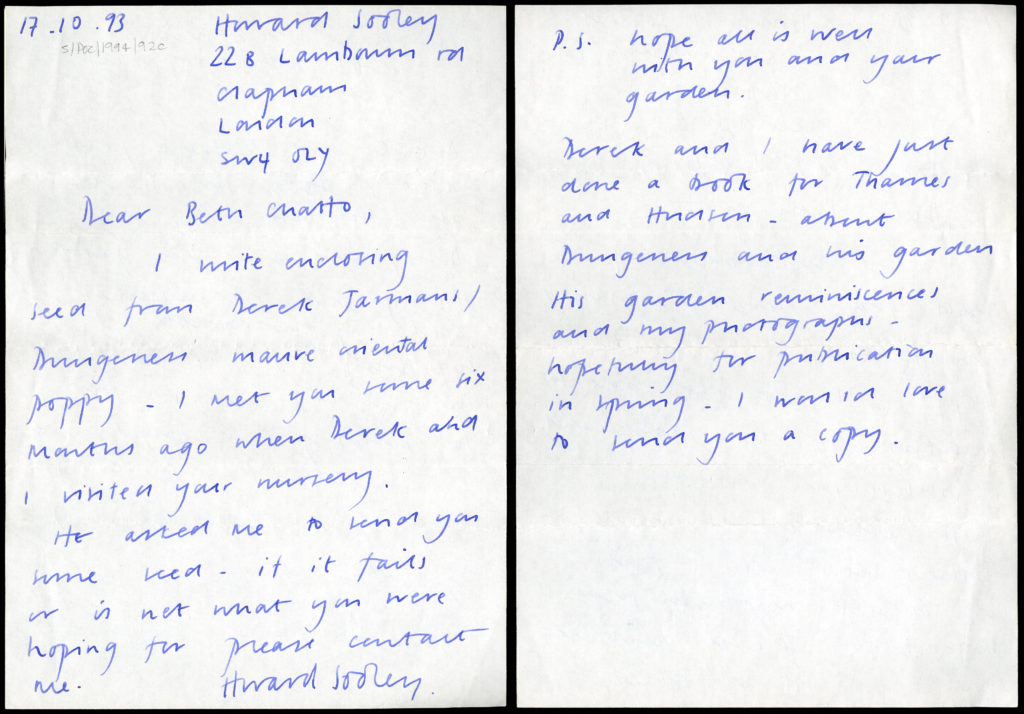 17.10.93
S/Poc/1994/920
Howard Sooley
22B Lambourn rd
Clapham
London
SW4 0LY
Dear Beth Chatto,
I write enclosing
seed from Derek Jarmans,
Dungeness mauve oriental
poppy - I met you some six
months ago when Derek and
I visited your nursery.
He asked me to send you
some seed - if it fails
or is not what you were
hoping for please contact
me.
Howard Sooley.
P.S. hope all is well
with you and your
garden.
Derek and I have just
done a book for Thames
and Hudson - about
Dungeness and his garden
His garden reminiscences
and my photographs -
hopefully for publication
in spring - I would love
to send you a copy.